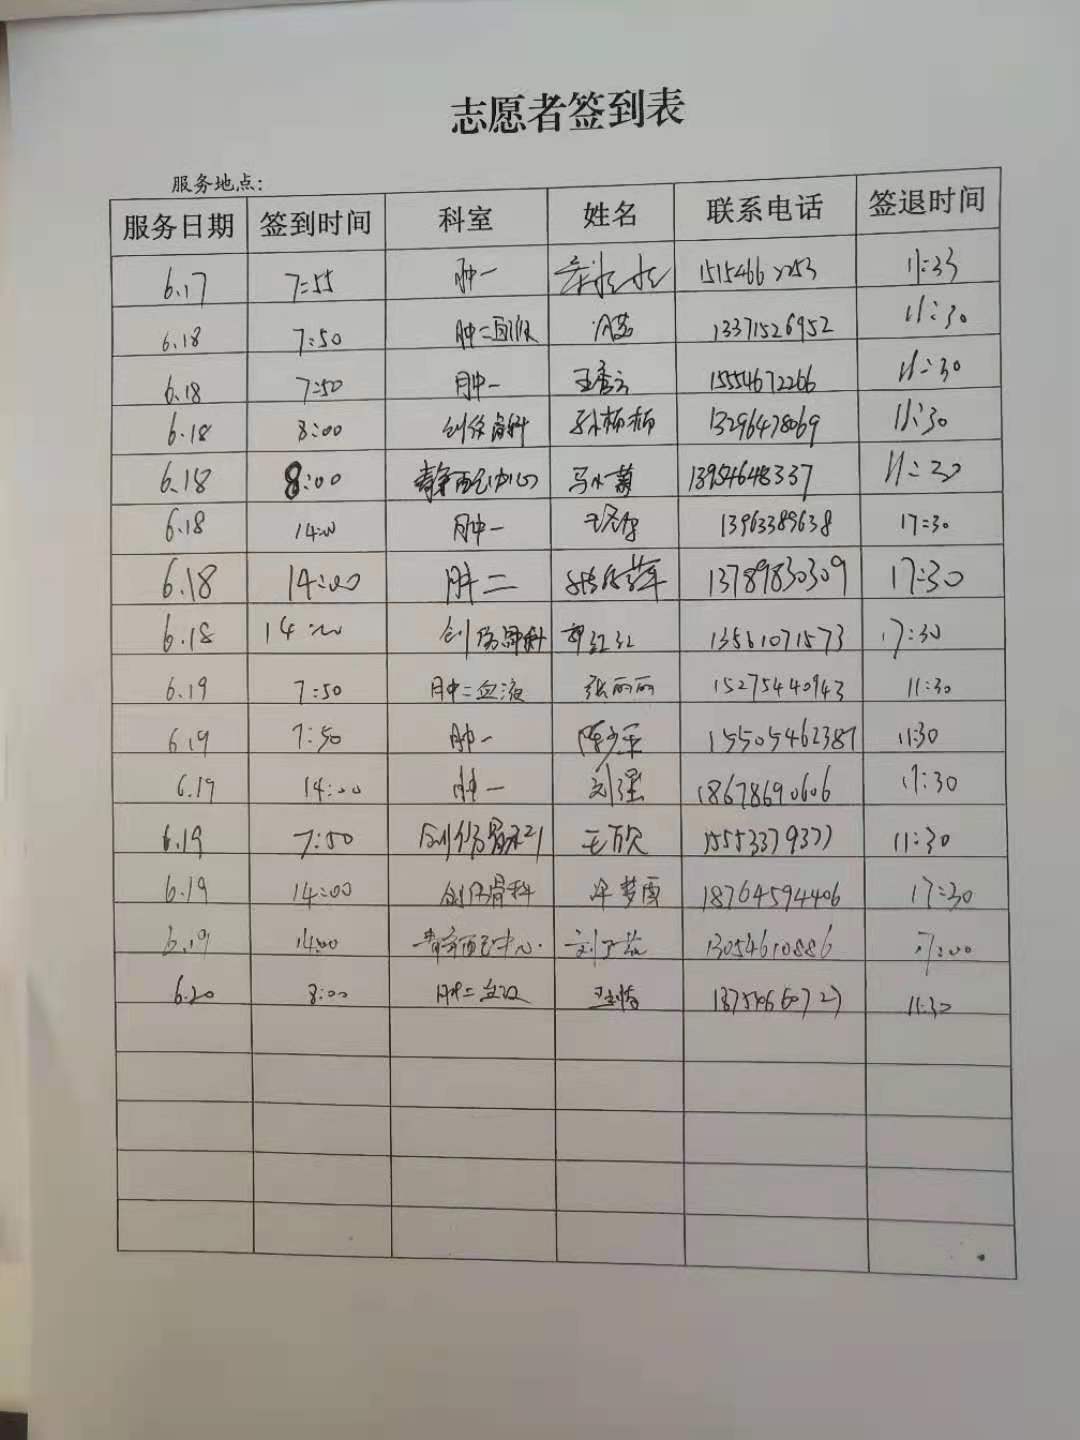 志愿者签到表
服务地点:
服务日期 签到时间 科室 姓名 联系电话 签退时间
6.17 7:55 肿一 11:33
6.18 7:50 肿二血液 13371526952 11:30
6.18 7:50 肿一 15554672266 11:30
6.18 8:00 创伤骨科 孙柳柳 13296478069 11:30
6.18 8:00 静配中心 马小菊 13954648337 11:20
6.18 14:00 肿一 13963389638 17:30
6.18 14:00 肿二 13789830309 17:30
6.18 14:00 创伤骨科 郭红红 13561071573 17:30
6.19 7:50 肿二血液 张丽丽 15275440943 11:30
6.19 7:50 肿一 15505462387 11:30
6.19 14:00 肿一 刘强 18678690606 17:30
6.19 7:50 创伤骨科21 王欣 15553379377 11:30
6.19 14:00 创伤骨科 牟梦雪 18764594406 17:30
6.19 14:00 静配中心. 13054610886 17:00
6.20 8:00 肿二血液 11:30